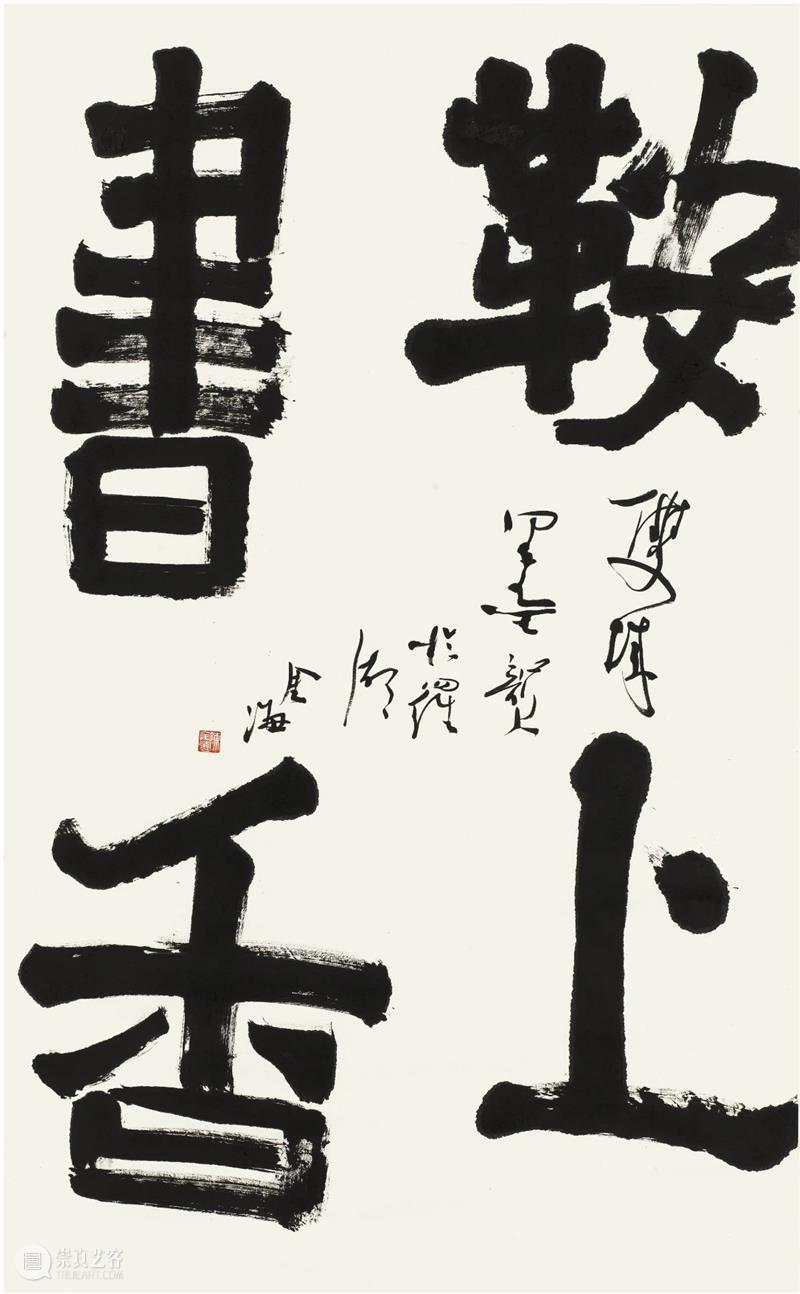 鞍上
書香
於羅
湖
金海
崇真艺客
TRUEART.COM